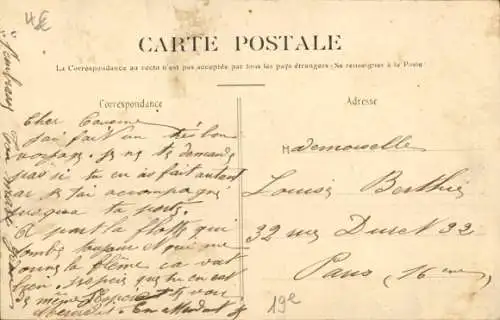 4€
CARTE POSTALE
La Correspondance au recto n'est pas acceptée par tous les pays étrangers (Se renseigner à la Poste)
Correspondance
Adresse
Cher
j'ai fait un très bon
voyage. Je ne te demande
pas si tu en as fait autant
car je t'ai accompagné
jusqu'a ta porte.
A part la flotte qui
tombe et qui me
donne la flême ca va
bien. J'espère que tu en est
de même
En attendant
Mademoiselle
Louise Berthié
32 rue Duret 32
Paris (16eme)
19e